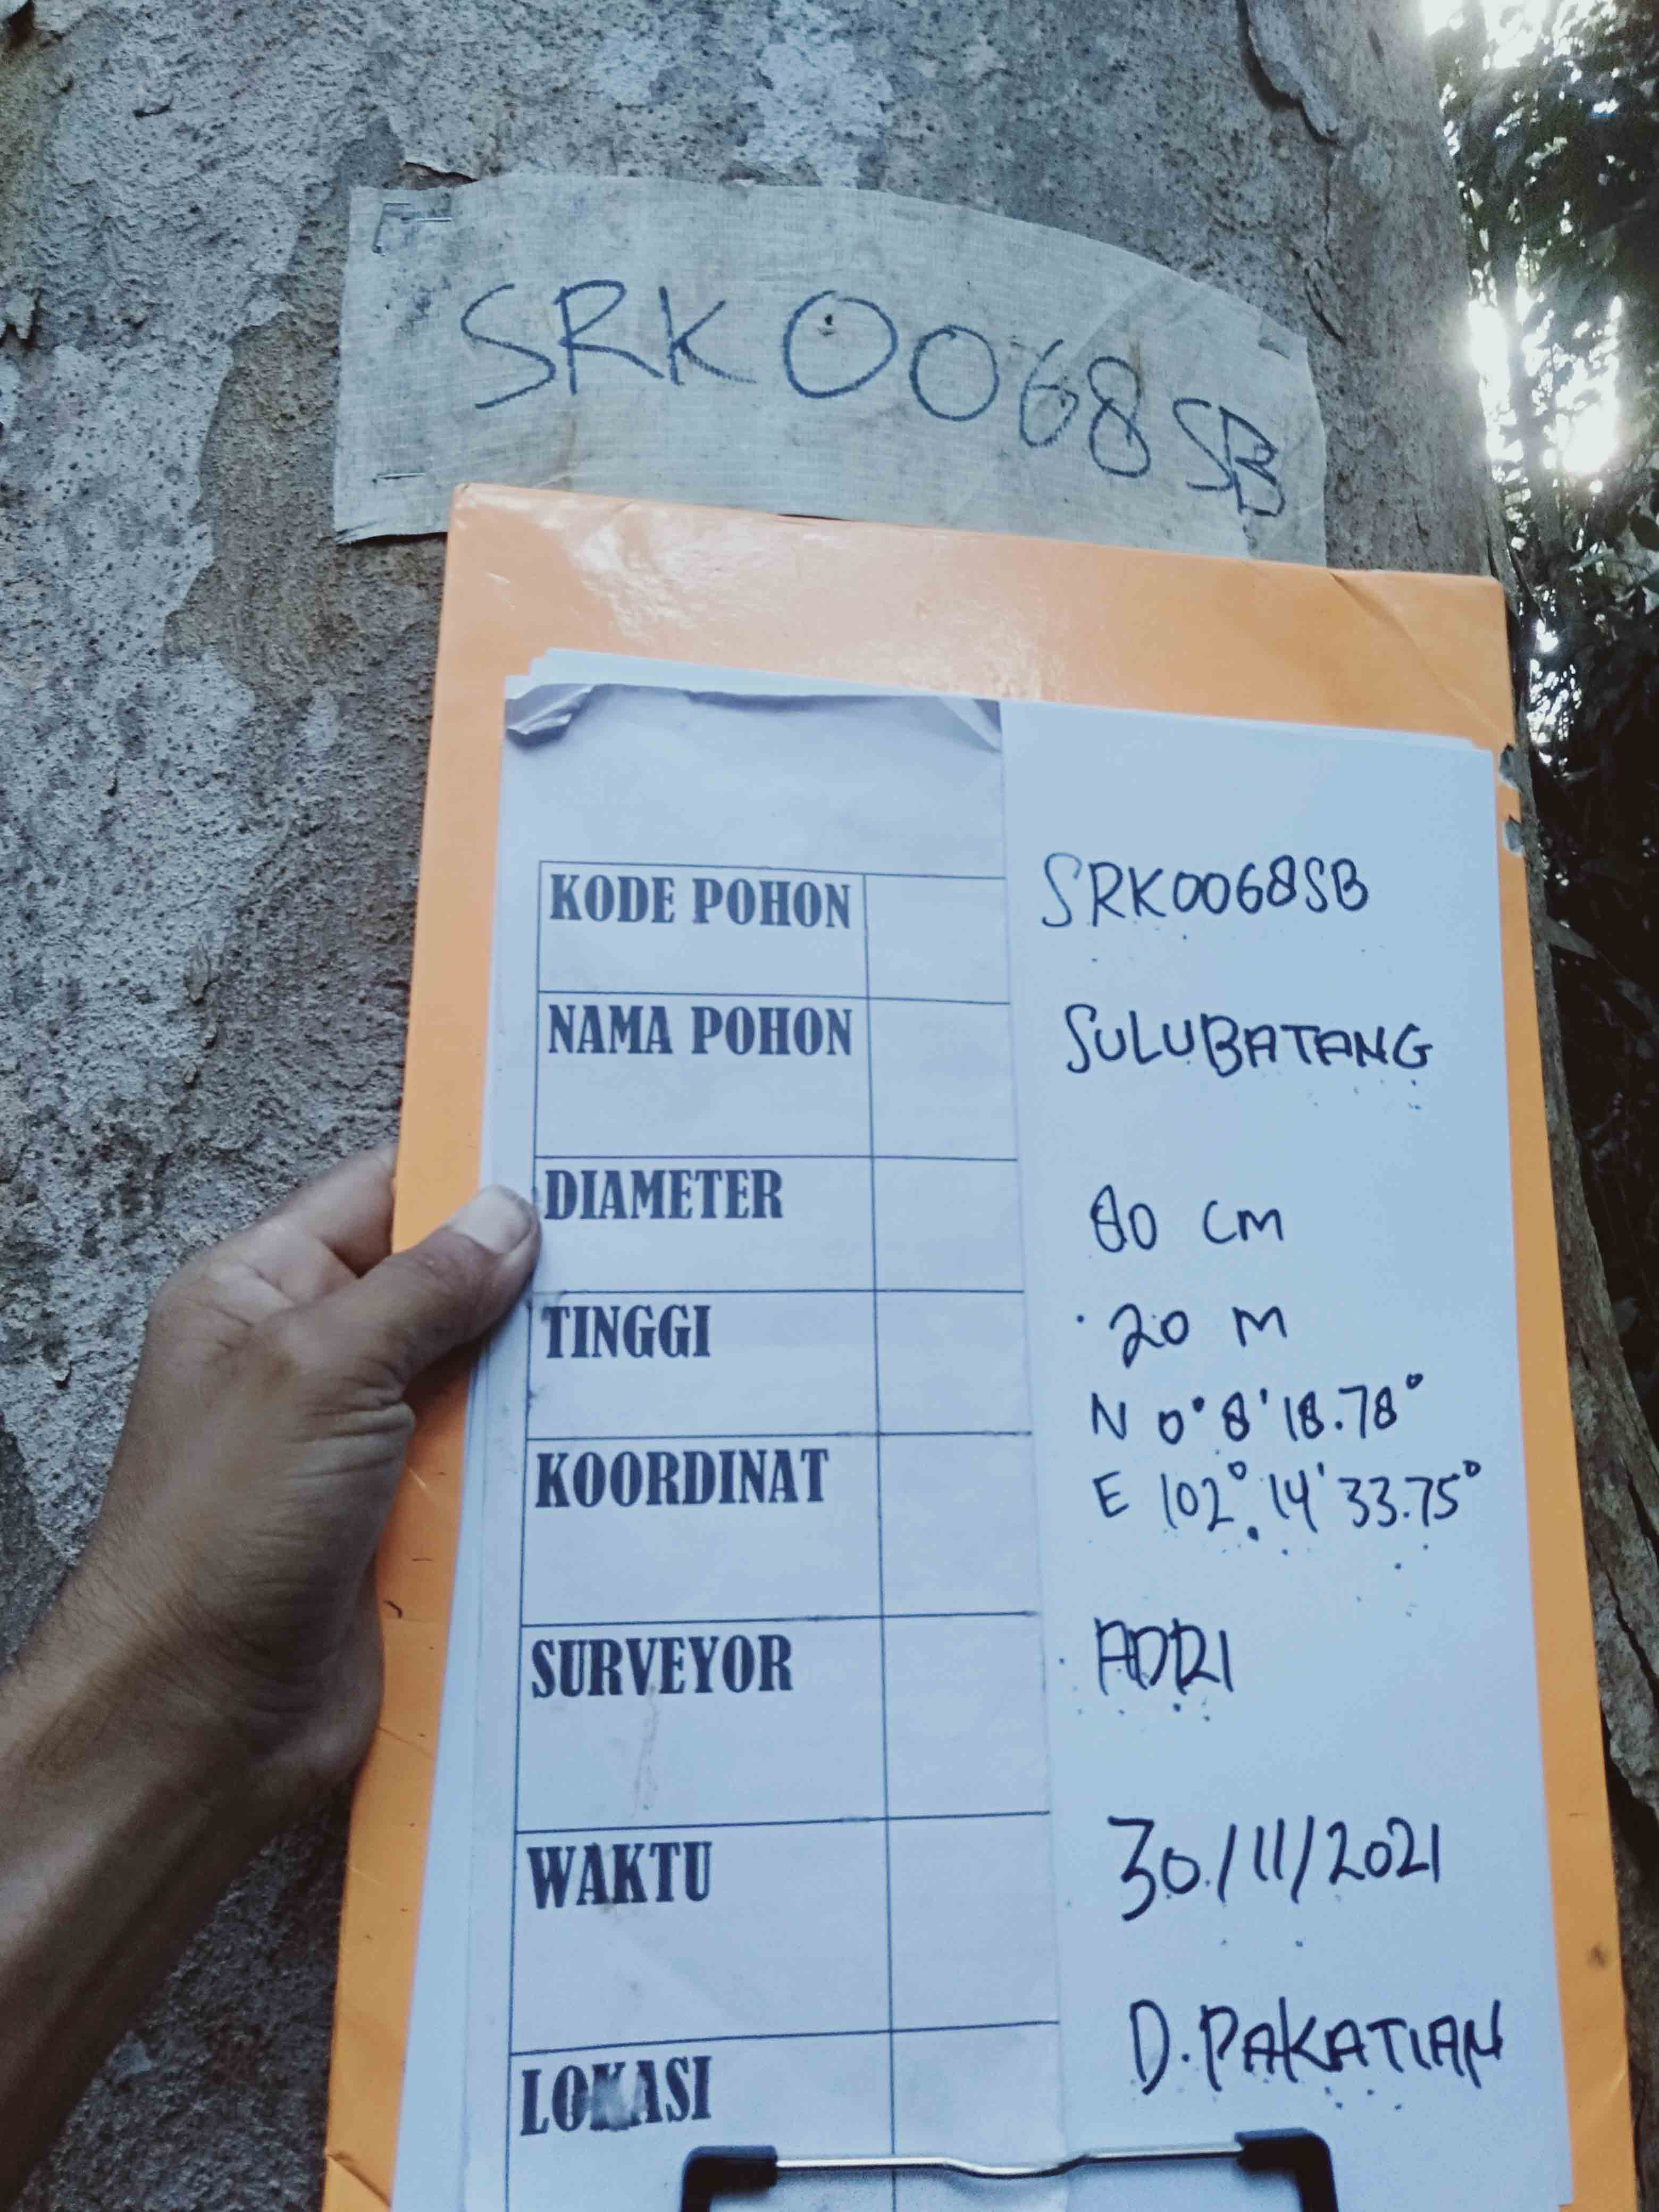 SRK0068SB
KODE POHON SRK0068SB
NAMA POHON SULUBATANG
DIAMETER 80 CM
TINGGI 20 M
N 0°8'18.78°
KOORDINAT E 102°14'33.75°
SURVEYOR ADRI
WAKTU 30/11/2021
LOKASI D.PAKATIAN